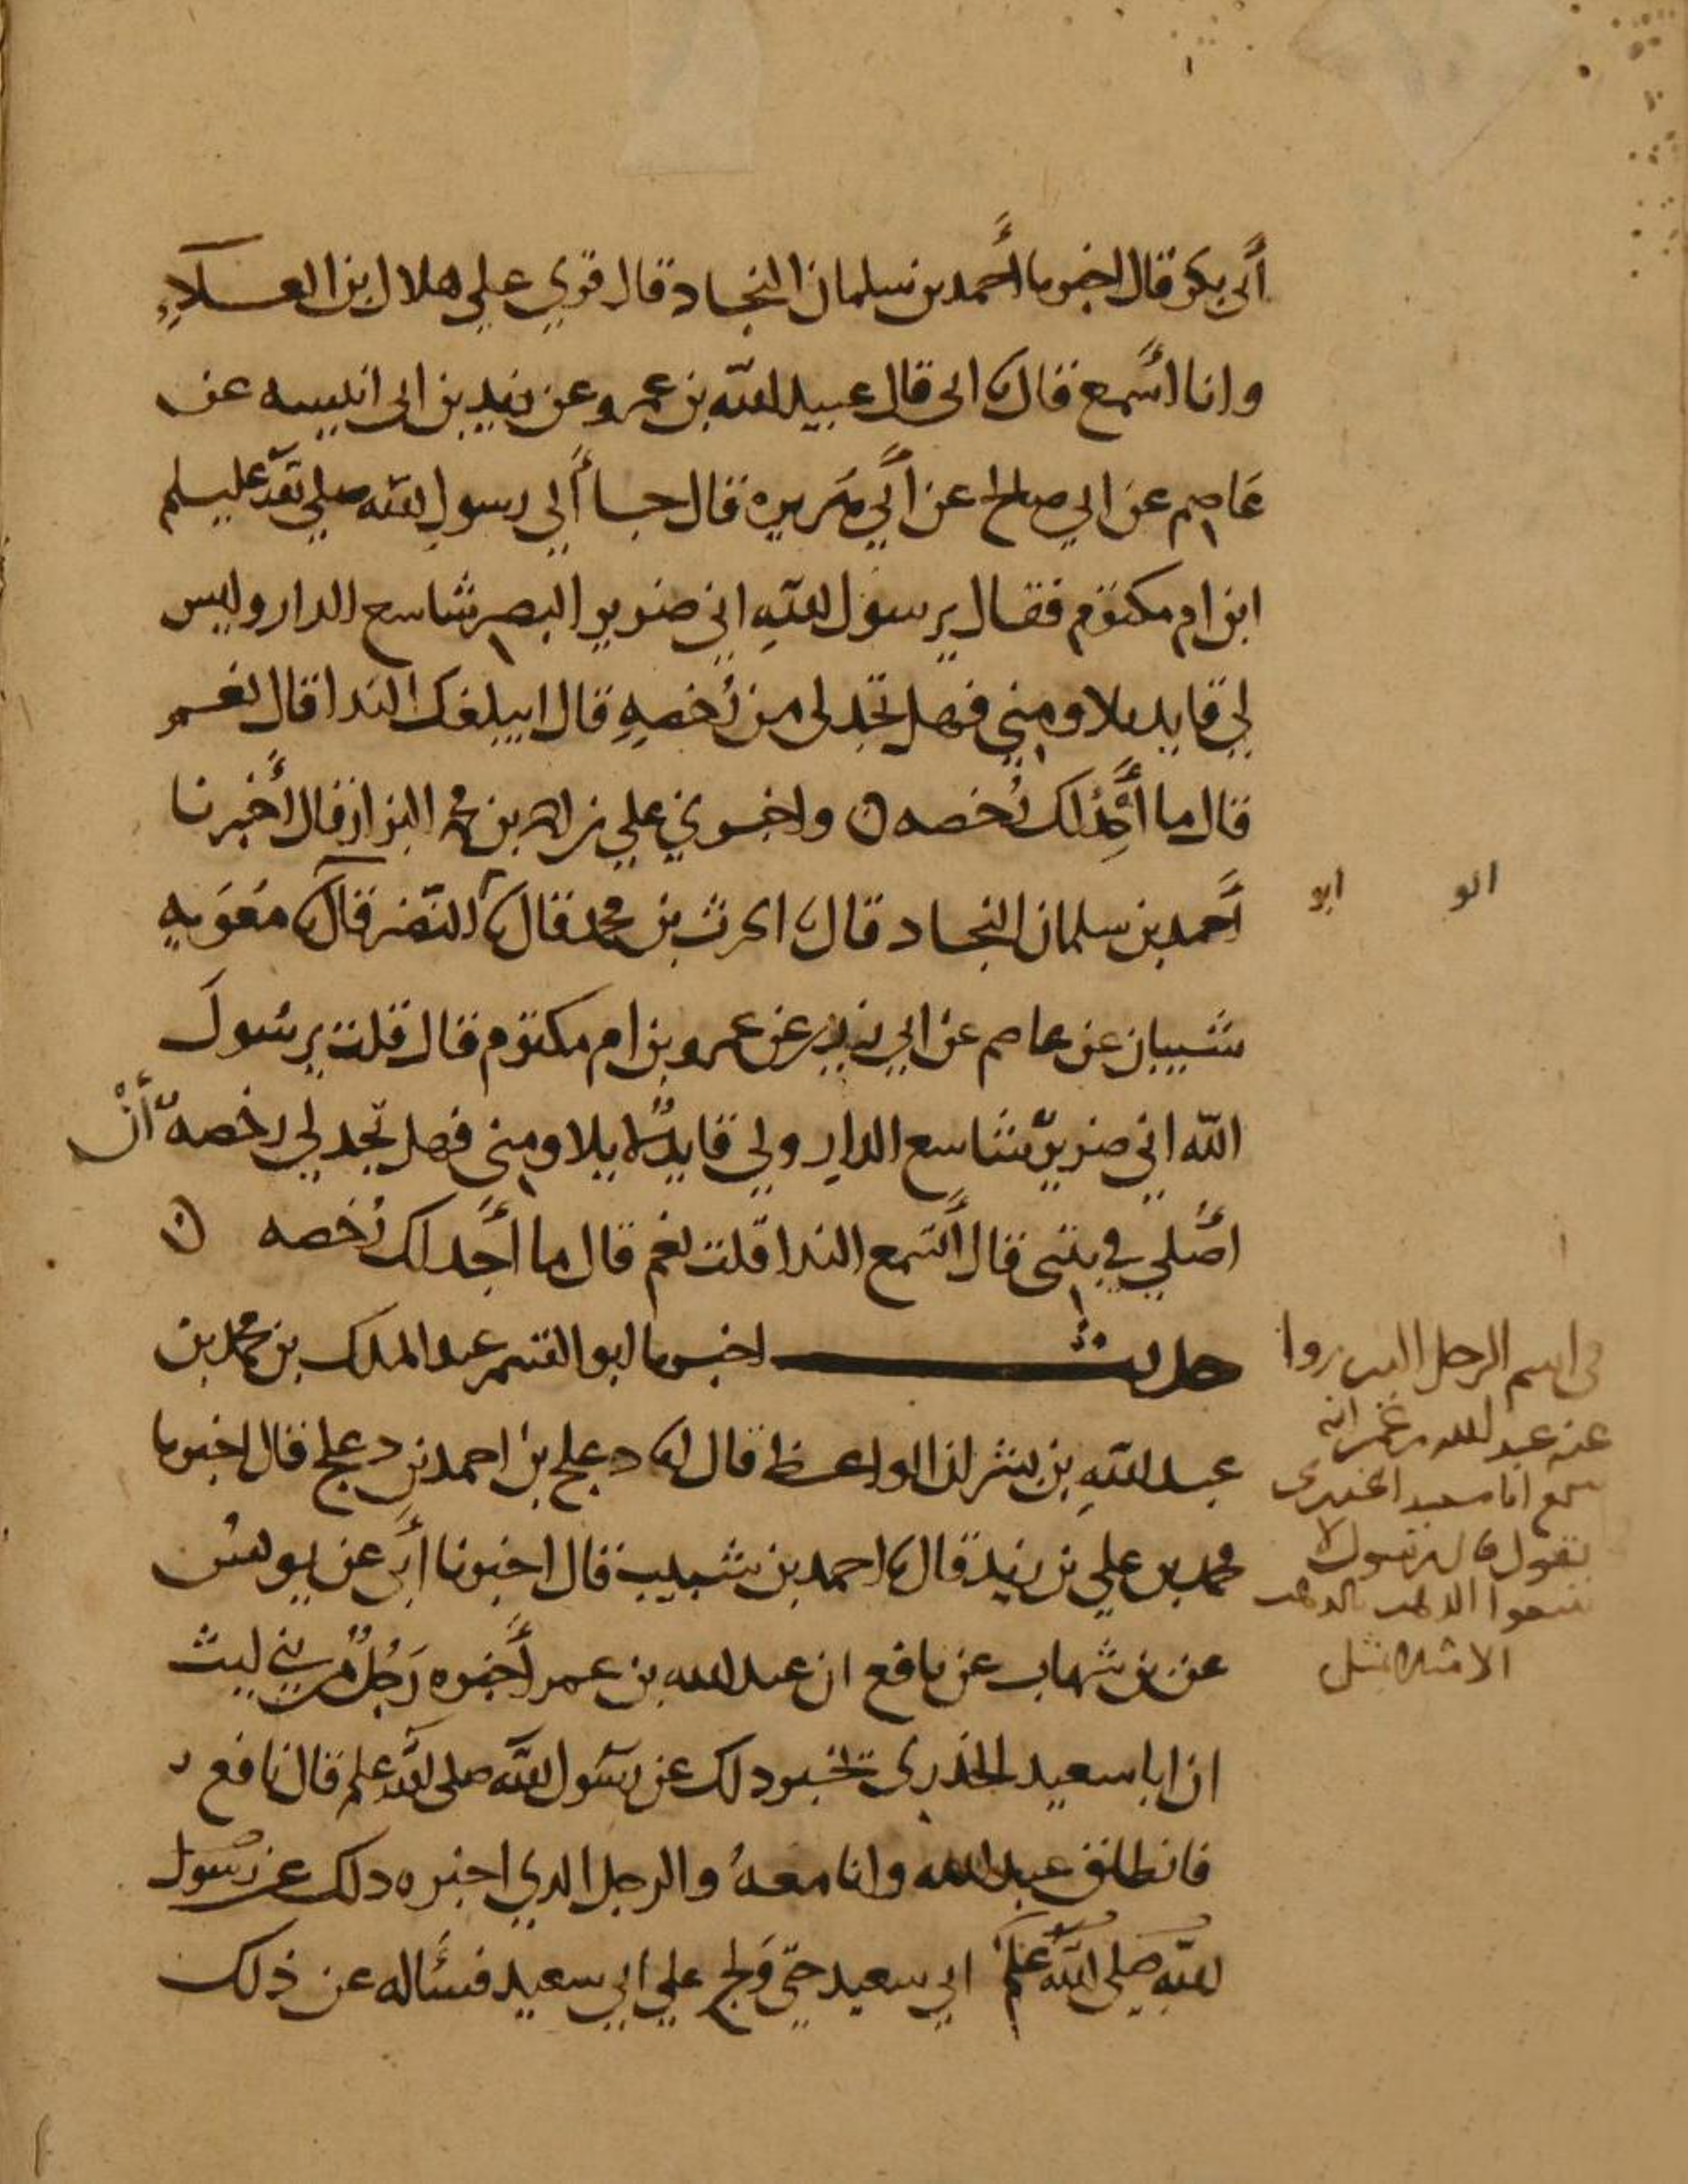 أبي بكر قال اخبرنا أحمد بن سلمان النجاد قال قري علي هلال ابن العلاء
وانا أسمع قال نا ابي قال عبيد الله بن عمرو عن زيد بن ابي انيسه عن
عاصم عن ابي صالح عن أبي هريرة قال جا ألي رسول الله صلي الله عليه وسلم
ابن ام مكتوم فقال يرسول الله اني ضرير البصر شاسع الدار وليس
لي قايد يلاومني فهل تجد لي من رُخصهِ قال ايبلغك الندا قال نعم
قال ما أجد لك رُخصه ن واخبرني علي بن محمد البزاز قال أخبرنا
أحمد بن سلمان النجاد قال نا الحرث بن محمد قال نا النضر قال نا معوَيه
ابو
ابو
شيبان عن عاصم عن ابي رزين عن عمرو بن ام مكتوم قال قلت يرسُولَ
الله اني ضريرٌ شاسع الدار ولي قايدٌ لا يلاومني فهل تجد لي رخصهً أنْ
اصُلي في بيتي قال أتسمع الندا قلت نعم قال ما أجد لك رُخصه ن
حديث اخبرنا ابو القسم عبد الملك بن محمد بن
عبد الله بن بشران الواعظ قال انا دعلج بن احمد بن دعلج قال اخبرنا
محمد بن علي بن زيد قال نا احمد بن شبيب قال اخبرنا أبي عن يونس
عن بن شهاب عن نافع ان عبد الله بن عمر أخبره رَجُلٌ من بني ليث
ان ابا سعيد الخذري تخبر دلك عن رسول الله صلى الله عليه وسلم قال نافع
فانطلق عبد الله وانا معهُ والرجل الدي اخبره دلك عن رسُول
الله صلى الله عليه وسلم ابي سعيد حتي وَلج علي ابي سعيد فسأله عن ذلك
في اسم الرجل الدي روا
عنه عبد الله بن عمر انه
سمع ابا سعيد الخدري
يقول قال رسول لا
تبيعوا الدهب بالدهب
الا مثلا بمثل